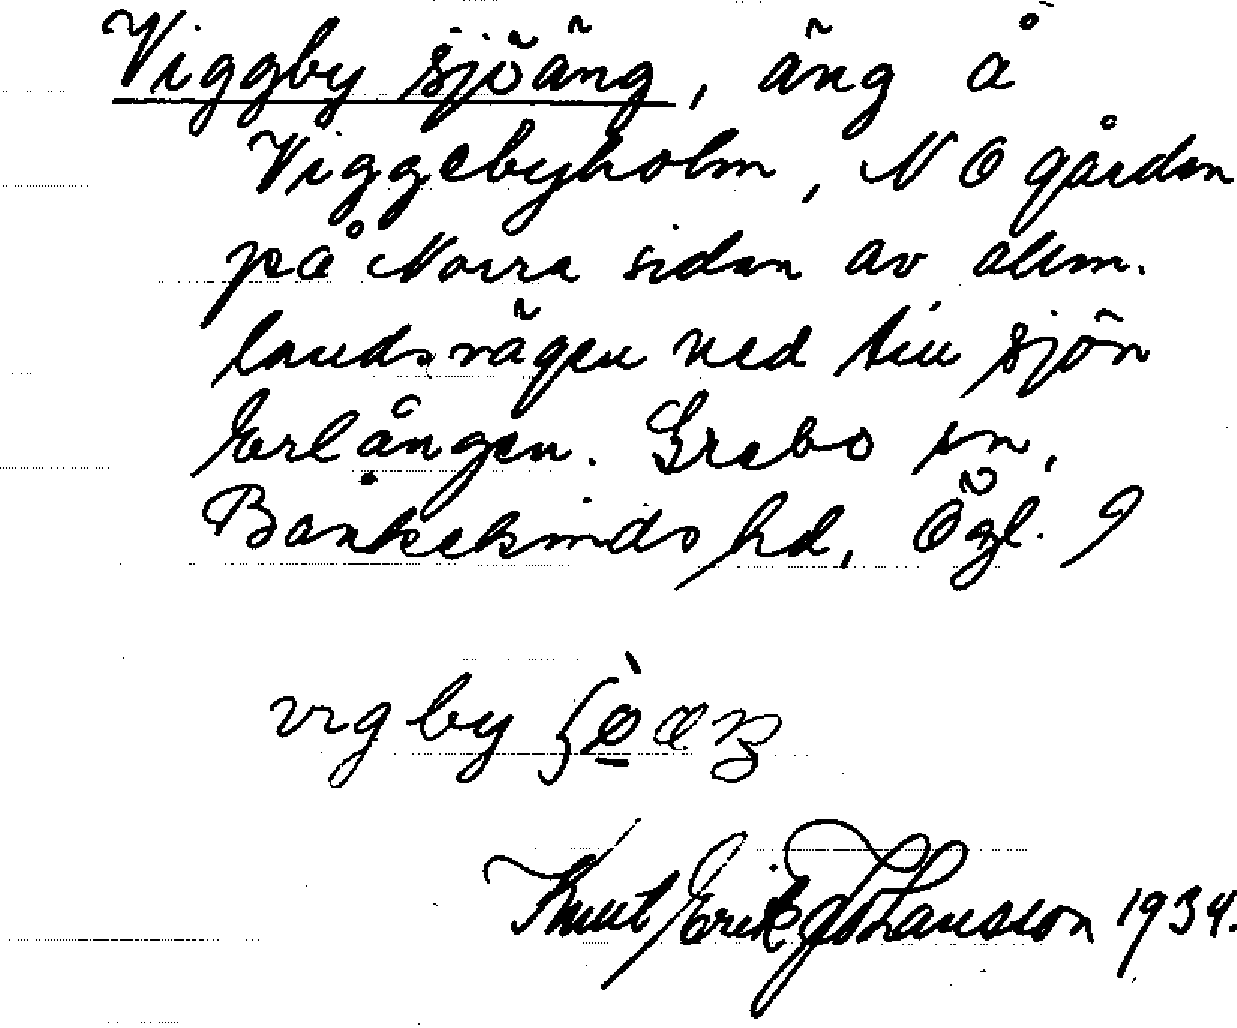 Viggby sjöäng, äng å
Viggebyholm, N O gården
på Norra sidan av allm.
landsvägen ned till sjön
Erlången. Grebo sn,
Bankekinds hd, Ögl.
Knut Erik Johansson 1934.